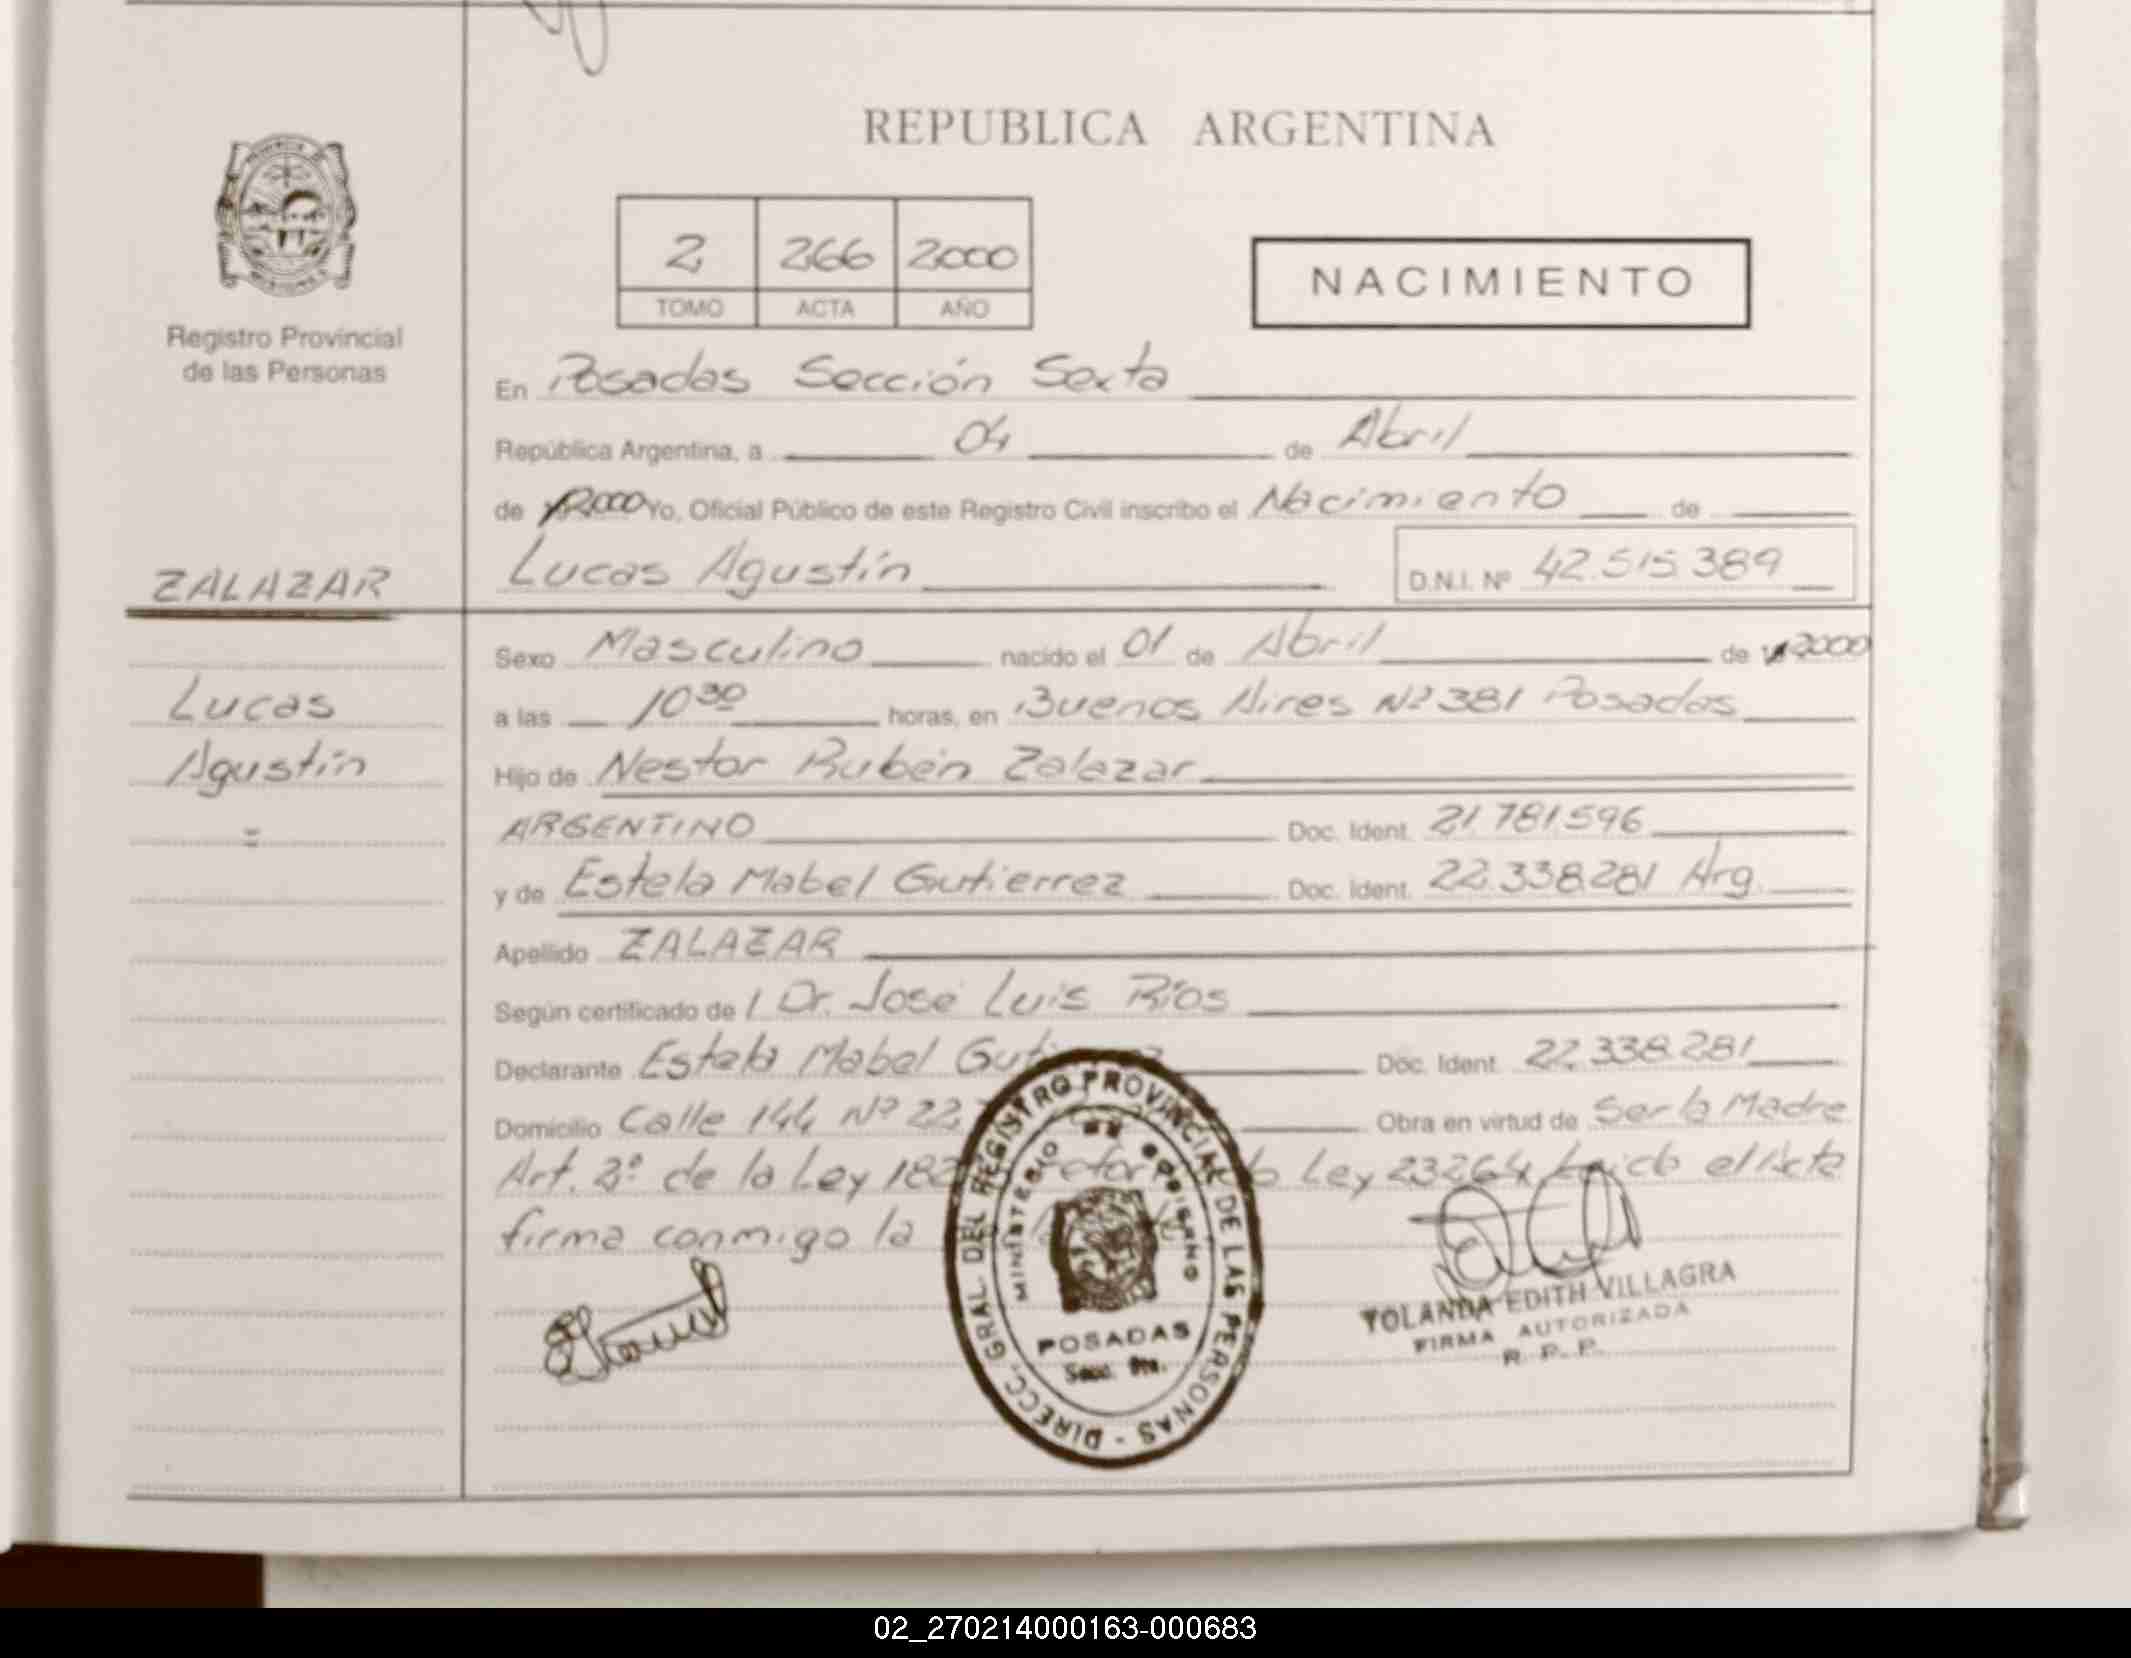 REPUBLICA ARGENTINA
2 266 2000
TOMO ACTA AÑO
NACIMIENTO
Registro Provincial
de las Personas
En Posadas Sección Sexta
República Argentina, a 04 de Abril
de 2000 Yo, Oficial Público de este Registro Civil inscribo el Nacimiento de
ZALAZAR
Lucas Agustín D.N.I. Nº 42.515.389
Sexo Masculino nacido el 01 de Abril de 2000
Lucas
a las 10 30 horas, en Buenos Aires Nº 381 Posadas
Agustín
Hijo de Nestor Rubén Zalazar
ARGENTINO Doc. Ident. 21.781.596
y de Estela Mabel Gutierrez Doc. Ident. 22.338.281 Arg.
Apellido ZALAZAR
Según certificado de / Dr. José Luis Ríos
Declarante Estela Mabel Doc. Ident. 22.338.281
Domicilio Calle 144 Nº Obra en virtud de Ser la Madre
Art. 2º de la Ley Ley 23264 el Acta
firma conmigo la
DIRECC. GRAL DEL REGISTRO PROVINCIAL DE LAS PERSONAS -
MINISTERIO DE GOBIERNO
POSADAS
YOLANDA EDITH VILLAGRA
FIRMA AUTORIZADA
R. P. P.
02_270214000163-000683